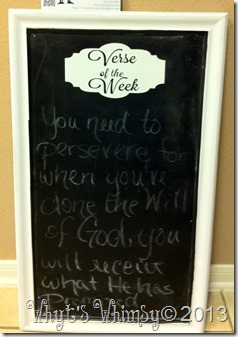 Verse
of the
Week
You need to
persevere for
when you've
done the Will
of God, you
will receive
what He has
Whyt's Whimsy©2013